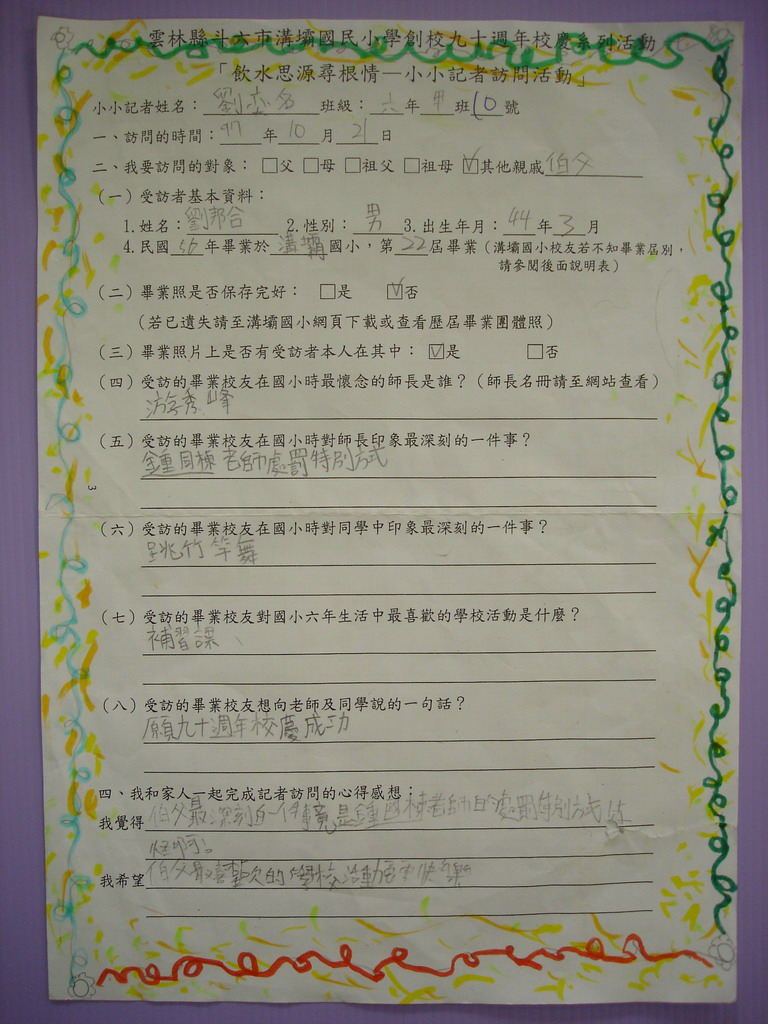 雲林縣斗六市溝壩國民小學創校九十週年校慶系列活動
「飲水思源尋根情—小小記者訪問活動」
小小記者姓名：劉 名 班級：六年甲班10號
一、訪問的時間：97年10月21日
二、我要訪問的對象：□父 □母 □祖父 □祖母 ☑其他親戚伯父
（一）受訪者基本資料：
1.姓名：劉邦合 2.性別：男 3.出生年月：44年3月
4.民國56年畢業於溝霸國小，第22屆畢業（溝壩國小校友若不知畢業屆別，
請參閱後面說明表）
（二）畢業照是否保存完好：□是 ☑否
（若已遺失請至溝壩國小網頁下載或查看歷屆畢業團體照）
（三）畢業照片上是否有受訪者本人在其中：☑是 □否
（四）受訪的畢業校友在國小時最懷念的師長是誰？（師長名冊請至網站查看）
游秀峰
（五）受訪的畢業校友在國小時對師長印象最深刻的一件事？
鍾 棟老師處罰特別方式
3
（六）受訪的畢業校友在國小時對同學中印象最深刻的一件事？
跳竹竿舞
（七）受訪的畢業校友對國小六年生活中最喜歡的學校活動是什麼？
補習課
（八）受訪的畢業校友想向老師及同學說的一句話？
願九十週年校慶成功
四、我和家人一起完成記者訪問的心得感想：
我覺得伯父最深刻的一件事竟是鍾 棟老師的處罰特別方式
我希望伯父最喜歡的學校活動 快樂